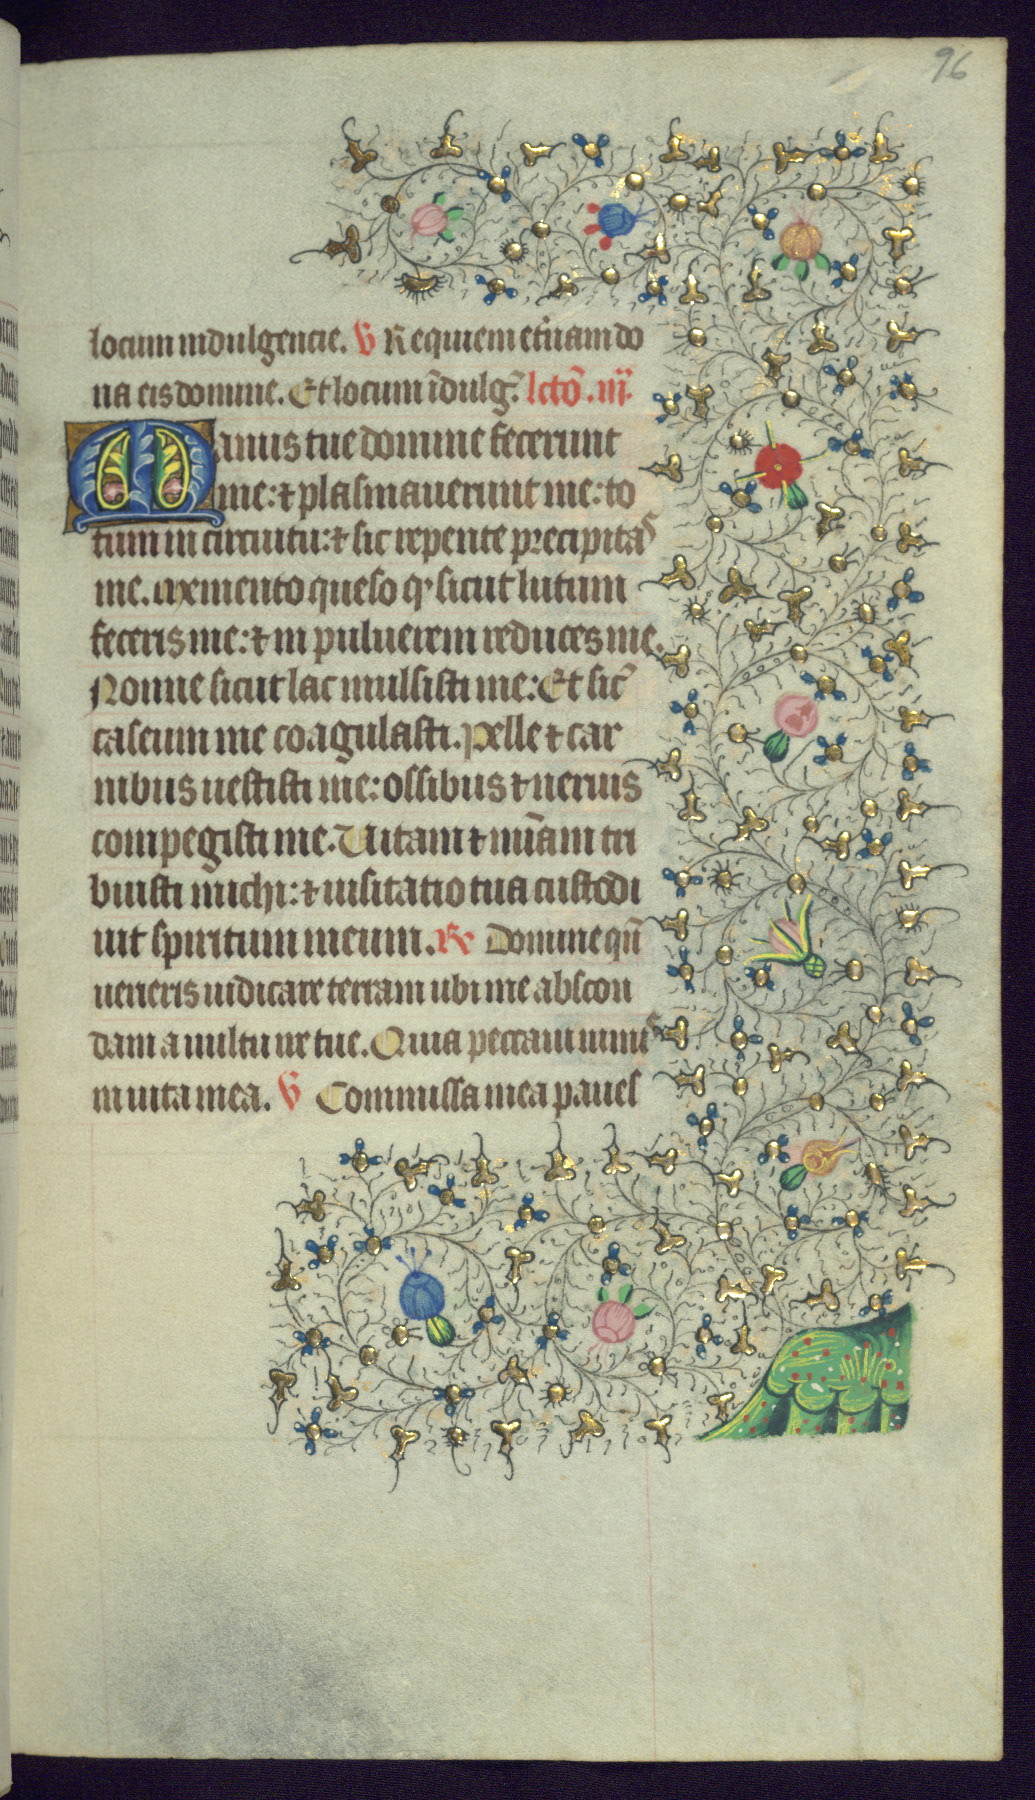 96
locum indulgencie. V Requiem et̾nam do
na eis domine. Et locum ĩdulg̃. lcto͂. iij.
Manus tue domine fecerunt
me: ⁊ plasmauerunt me: to
tum in circuitu: ⁊ sic repente precipitas
me. Memento queso q sicut lutum
feceris me: ⁊ in puluerem reduces me.
Nonne sicut lac mulsisti me: Et sic̃
caseum me coagulasti. Pelle ⁊ car
nibus uestisti me: ossibus ⁊ neruis
compegisti me. Uitam ⁊ mĩam tri
buisti michi: ⁊ uisitatio tua custodi
uit spiritum meum. R Domine qñ
ueneris iudicare terram ubi me abscon
dam a uultu ire tue. Quia peccaui nimis
in uita mea. V Commissa mea paues